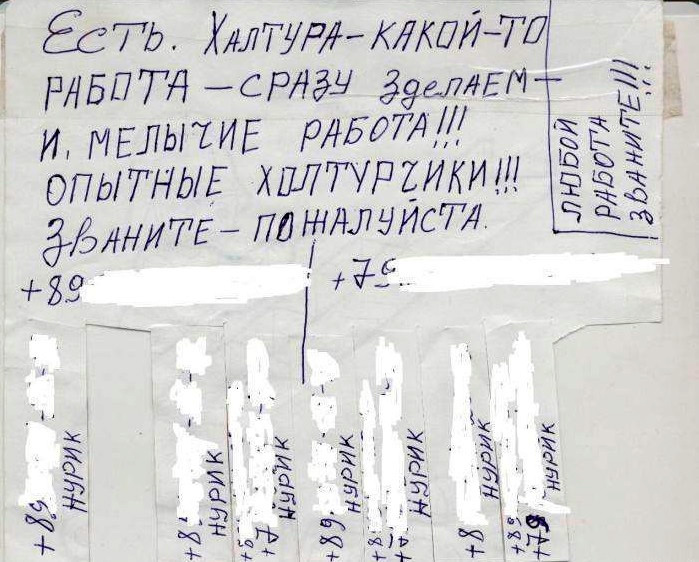 Есть. Халтура-какой-то
работа - сразу зделаем-
и, мелычие работа!!!
опытные холтурчики!!!
званите- пожалуйста.
любой
работа
званите!!!
+89
+79
+89 Нурик
+8 Нурик
+8 +7 Нурик
+89 Нурик
+8 +7 Нурик
+8 Нурик
+89 +79 Нурик